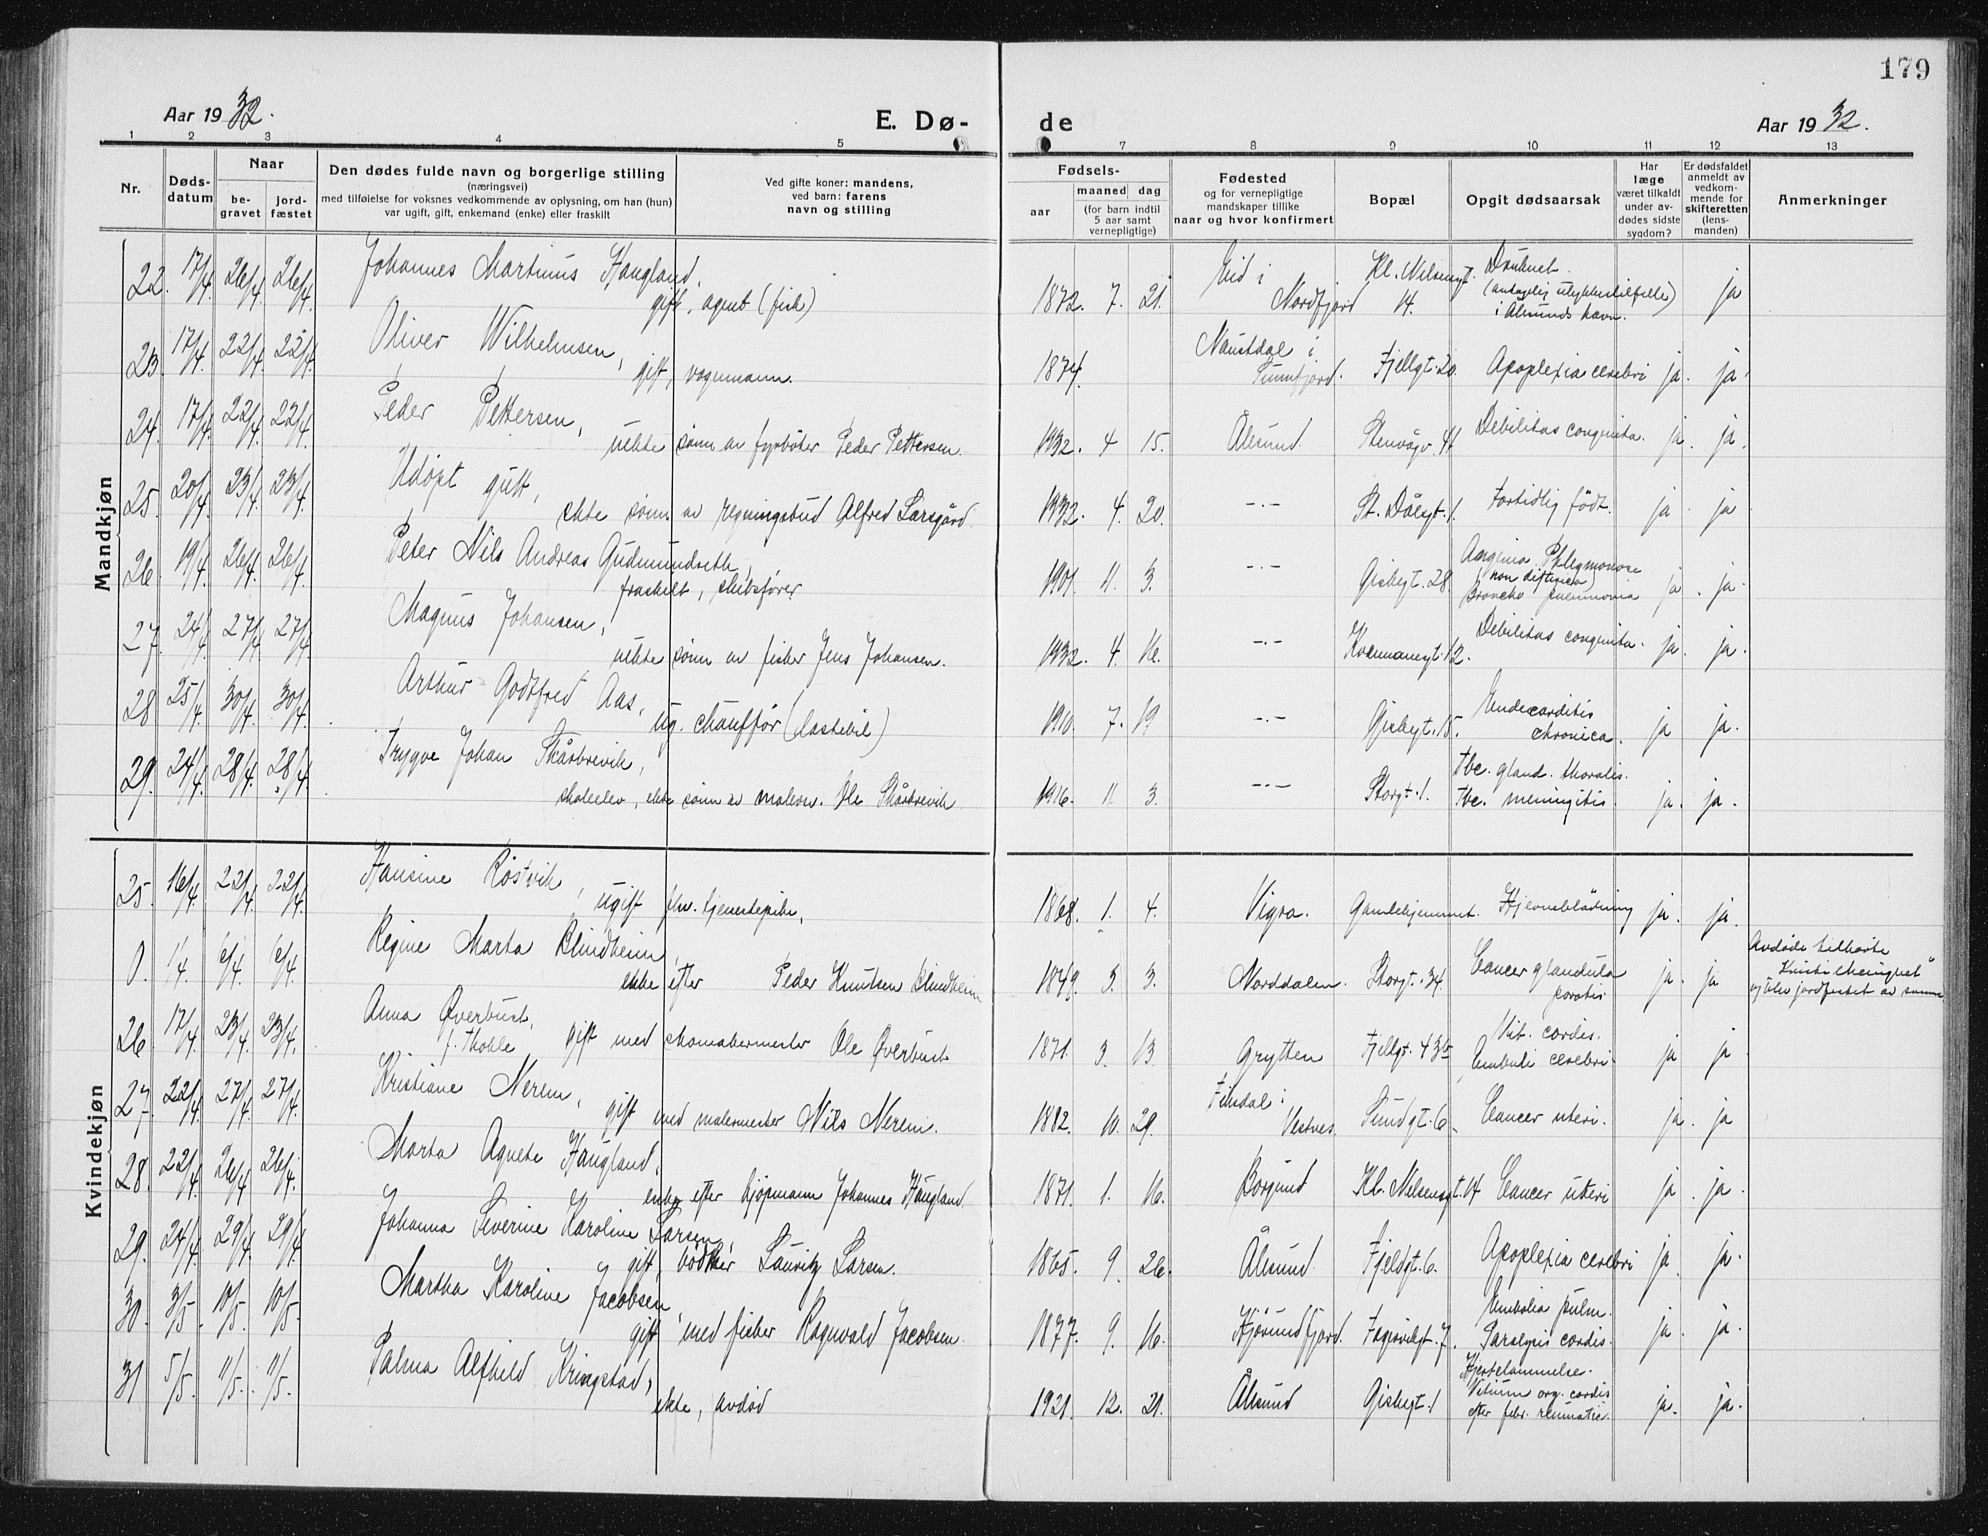 179
Aar 1932.
E. Dø-
de
Aar 1932.
1 2 3 4 5 7 8 9 10 11 12 13
Nr.
Dødsdatum
Naar
begravet
jordfæstet
Den dødes fulde navn og borgerlige stilling
(næringsvei)
med tilføielse for voksnes vedkommende av oplysning, om han (hun)
var ugift, gift, enkemand (enke) eller fraskilt
Ved gifte koner: mandens,
ved barn: farens
navn og stilling
Fødsels-
aar
maaned
dag
(for barn indtil
5 aar samt
vernepligtige)
Fødested
og for vernepligtige
mandskaper tillike
naar og hvor konfirmert
Bopæl
Opgit dødsaarsak
Har
læge
været tilkaldt
under avdødes sidste
sygdom?
Er dødsfaldet
anmeldt av
vedkommende for
skifteretten
(lensmanden)
Anmerkninger
Mandkjøn
22. 17/4. 26/4. 26/4. Johannes Martinus Haugland, gift, agent (fisk) 1872. 7. 21. Eid i Nordfjord Kl. Nilsensgt. 14. Druknet. (antagelig ulykkestilfelle) i Ålesunds havn. ja
23. 17/4. 22/4. 22/4. Oliver Wilhelmsen, gift, vognmann. 1874. Naustdal i Sunnfjord. Fjellgt. 20. Apoplexia cerebri ja. ja.
24. 17/4. 22/4. 22/4. Peder Pettersen, uekte sønn av fyrbøter Peder Pettersen. 1932. 4 15. Ålesund Stenvågv. 41 Debilitas congenita. ja. ja.
25. 20/4. 23/4. 23/4. Udøpt gutt, ekte sønn av regningsbud Alfred Larsgård. 1932. 4. 20. -"- St. Olavsgt. 1. Fortidlig født. ja ja
26. 19/4. 26/4. 26/4. Peter Nils Andreas Gudmundseth, fraskilt, skibsfører 1901. 11. 3. -"- Gisbegt. 28. Angina Phlegmonose (non difterica) Broncho pneumonia ja. ja.
27. 24/4. 27/4. 27/4. Magnus Johansen, uekte sønn av fisker Jens Johansen. 1932. 4. 16. -"- Debilitas congenita. ja. ja.
28. 25/4. 30/4. 30/4. Arthur Godtfred Aas, ug. chauffør (lastebil) 1910. 7. 19 -"- Gisbegt. 15. Endocarditis chronica. ja ja.
29. 24/4. 28/4. 28/4. Trygve Johan Skårbrevik, skoleelev, ekte sønn av malerm. Ole Skårbrevik 1916. 11. 3. -"- Storgt. 1. Tbc. gland. thoralis. Tbc. meningitis. ja. ja.
Kvindekjøn
25. 16/4. 22/4. 22/4. Hansine Røstvik, ugift fhv. tjenestepike, 1868. 1. 4. Vigra. Gamlehjemmet. Hjerneblødning ja. ja.
0. 1/4 6/4. 6/4. Regine Marta Blindheim, enke efter Peder Knutsen Blindheim 1849. 3. 3. Norddalen. Storgt. 34. Cancer glandula parotis ja. ja Avdøde tilhørte "Misjonsmenighet" og blev jordfestet av samme
26. 17/4. 23/4. 23/4. Anna Øverbust, f. Thokle gift med skomakermester Ole Øverbust 1871. 3. 13. Grytten Fjellgt. 43b Vit. cordis. Emboli cerebri. ja ja
27. 22/4. 27/4. 27/4. Kristiane Nerem, gift med malermester Nils Nerem. 1882. 10. 29. i Vestnes. Sundgt. 6. Cancer uteri. ja. ja
28. 22/4. 26/4. 26/4. Marta Agnete Haugland, enke efter kjøpmann Johannes Haugland. 1871. 1. 16. Borgund Kl. Nilsensgt. 14 Cancer uteri ja. ja.
29. 24/4. 29/4. 29/4. Johanna Severine Karoline Larsen, gift, bødker Lauritz Larsen. 1865. 9. 26. Ålesund. Fjeldgt. 6. Apoplexia cerebri ja. ja.
30. 3/5. 10/5. 10/5. Martha Karoline Jacobsen, gift med fisker Ragnvald Jacobsen. 1877. 9. 16. Hjørundfjord. Fagervikgt. 7. Embolia pulm. Paralysis cordis. ja. ja.
31 5/5. 11/5. 11/5. Palma Alfhild Kringstad, ekte, avdød 1921. 12. 21. Ålesund Gisbegt. 1 Hjertelammelse. Vitium org. cordis efter febr. reumatic. ja. ja.